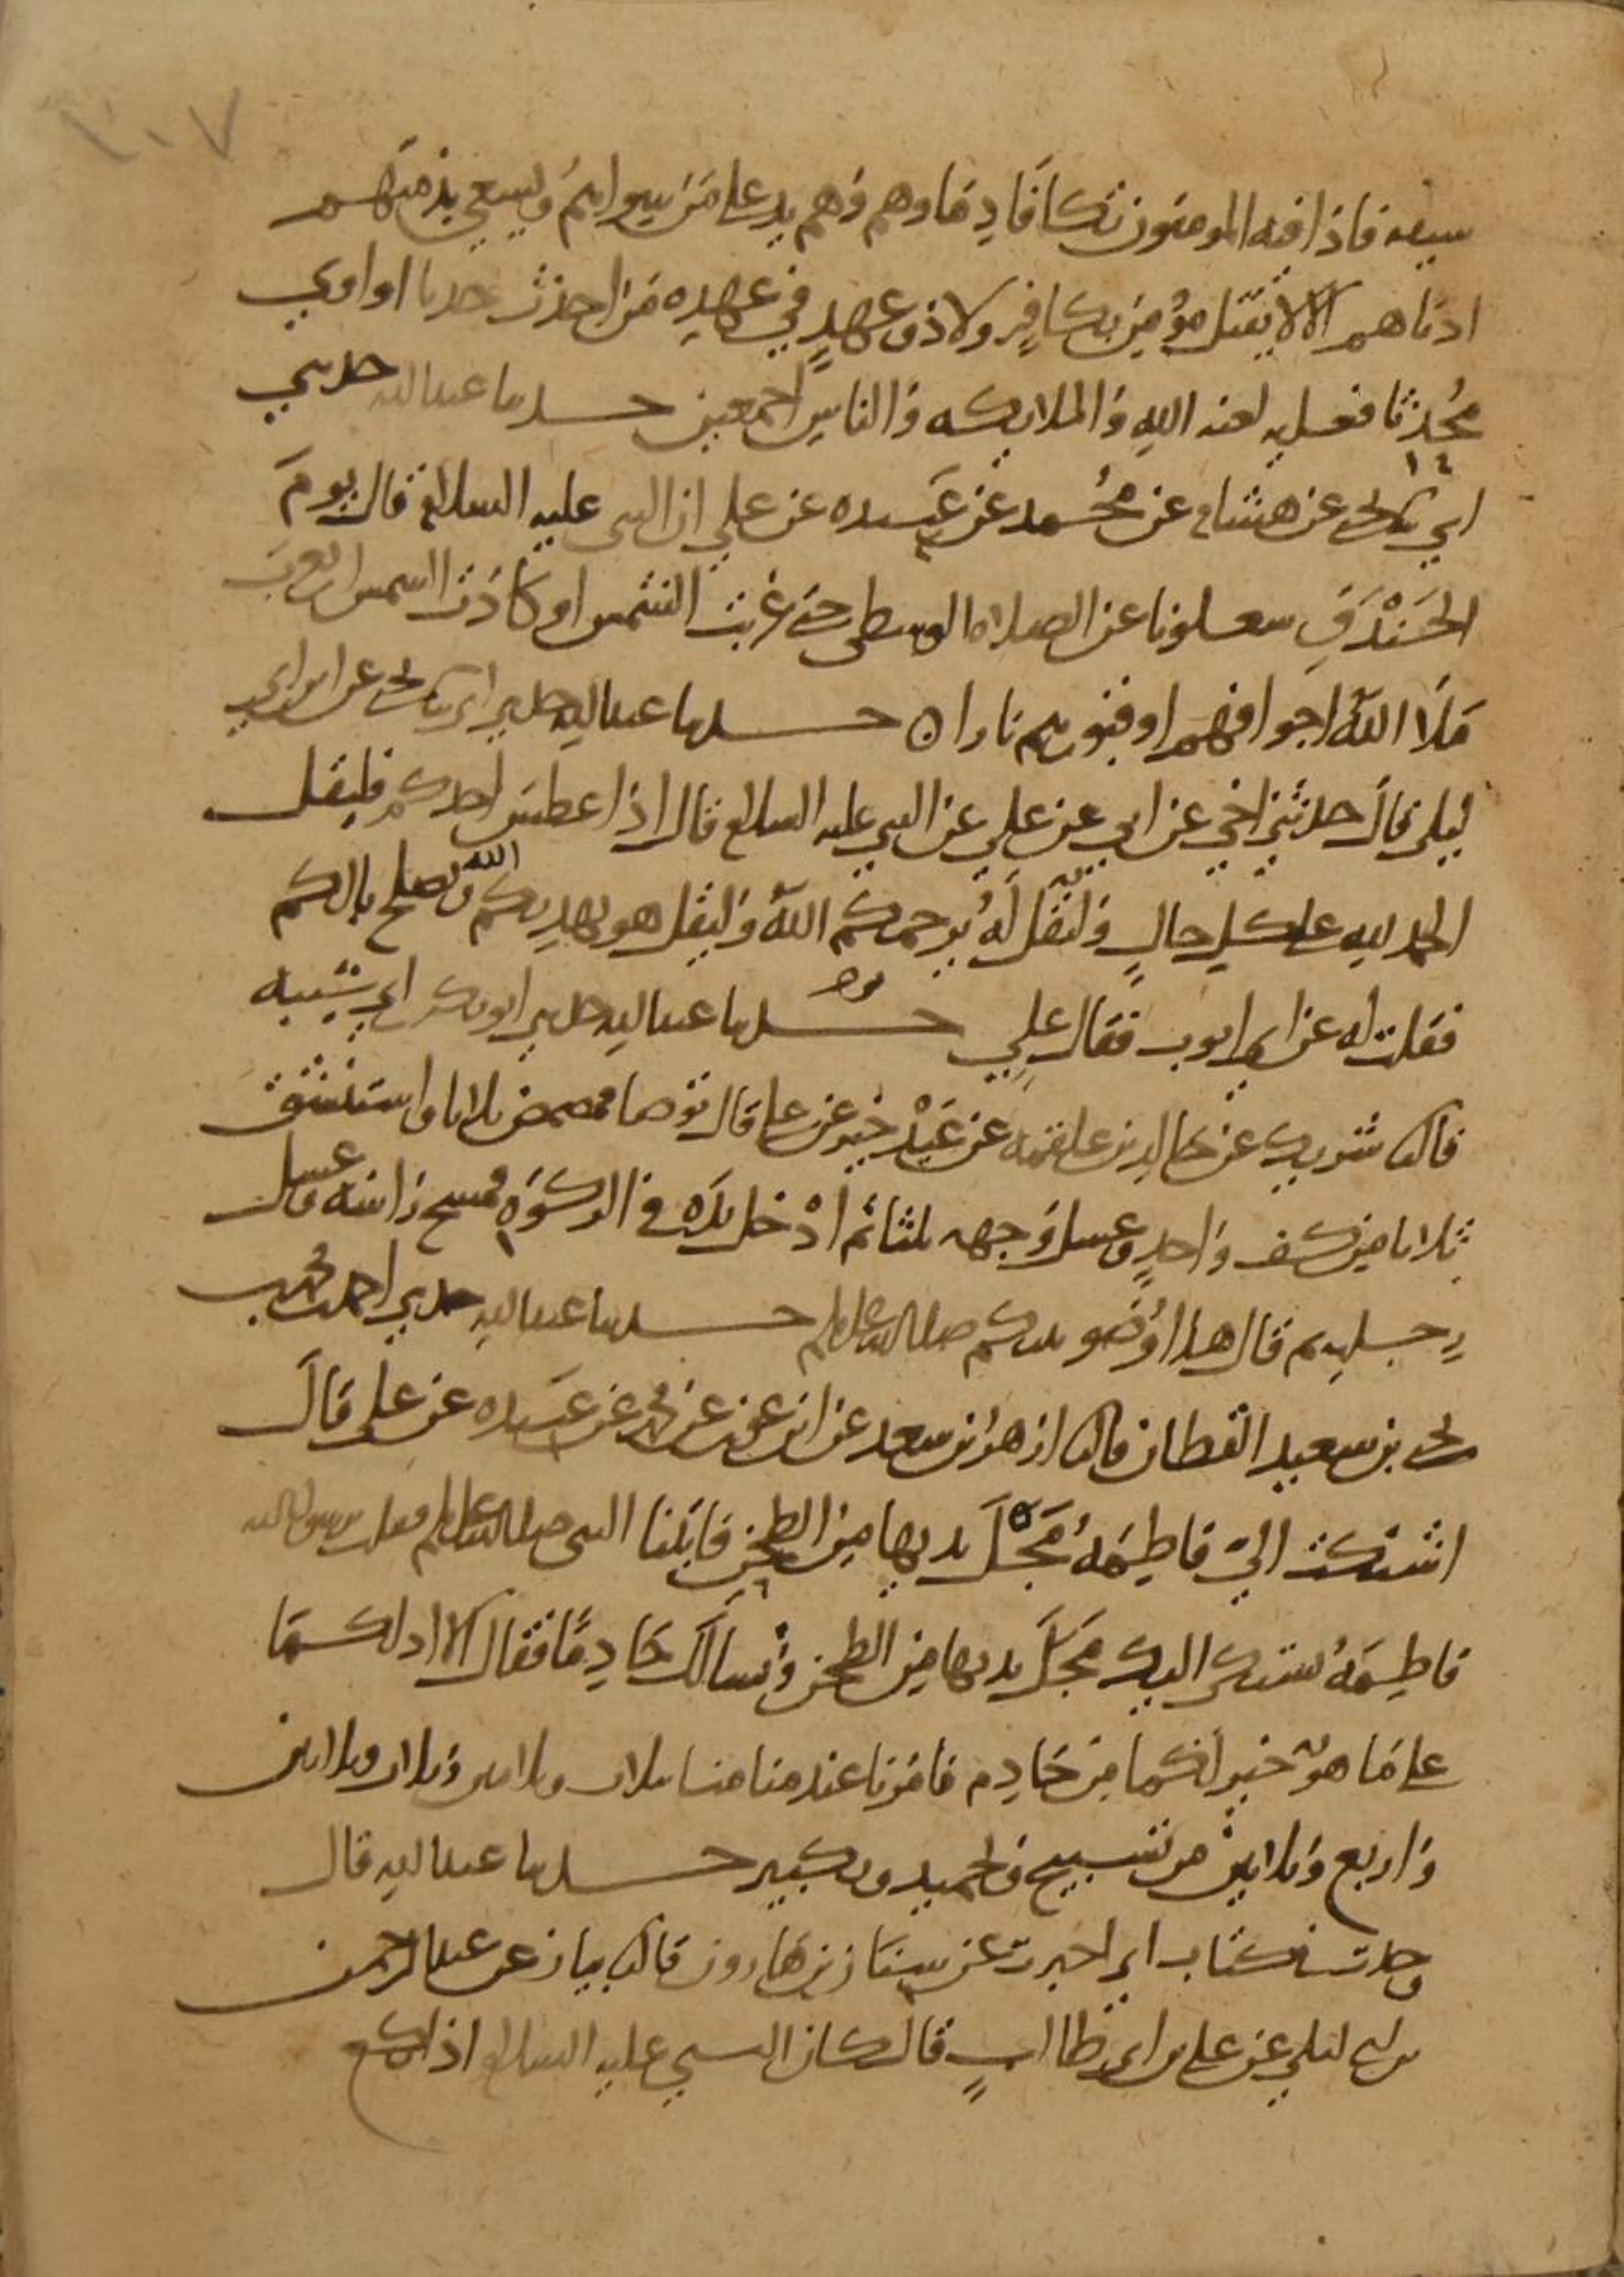 ١٠٧
سيفه فاذا فيه المومنون تكافا دماوهم وهم يد على من سواهم ويسعى بذمتهم
ادناهم الا لا يقتل مؤمن بكافر ولا ذو عهد في عهده من احدث حدثا او اوى
محدثا فعليه لعنه الله والملايكه والناس اجمعين حدثنا عبد الله حدثني
ابي نا يحى عن هشام عن محمد عن عبيده عن علي ان النبى عليه السلام قال يوم
الخندق شغلونا عن الصلاه الوسطى حتى غربت الشمس او كادت الشمس ان تغرب
ملا الله اجوافهم او قبورهم نارا حدثنا عبد الله حدثني ابي نا يحى عن ابن ابي
ليلى قال حدثني اخي عن ابي عن علي عن النبي عليه السلام قال اذا عطس احدكم فليقل
الحمد لله على كل حال وليقل له يرحمكم الله وليقل هو يهديكم الله ويصلح بالكم
فقلت له عن ابي ايوب فقال علي حدثنا عبد الله حدثني ابو بكر بن ابي شيبه
قال نا شريك عن خالد بن علقمه عن عبد خير عن على قال توضا فمضمض ثلاثا واستنشق
ثلاثا من كف واحد وغسل وجهه ثلثا ثم ادخل يده في الركوه فمسح راسه وغسل
رجليه ثم قال هذا وضو نبيكم صلى الله عليه وسلم حدثنا عبد الله حدثني احمد بن محمد بن
يحى بن سعيد القطان قال نا ازهر بن سعد عن ابن عون عن محمد عن عبيده عن علي قال
اشتكت الي فاطمه مجل يديها من الطحن فاتينا النبى صلى الله عليه وسلم فقلت يرسول الله
فاطمه تشتكى اليك مجل يديها من الطحن وتسالك خادما فقال الا ادلكما
على ما هو خير لكما من خادم فامرنا عند منامنا بثلاث وثلاثين وثلاث وثلاثين
واربع وثلاثين من تسبيح وتحميد وتكبير حدثنا عبد الله قال
وجدت في كتاب ابي اخبرت عن سنان بن هارون قال نا بيان عن عبد الرحمن
بن ابي ليلى عن علي بن ابي طالب قال كان النبي عليه السلام اذا ركع